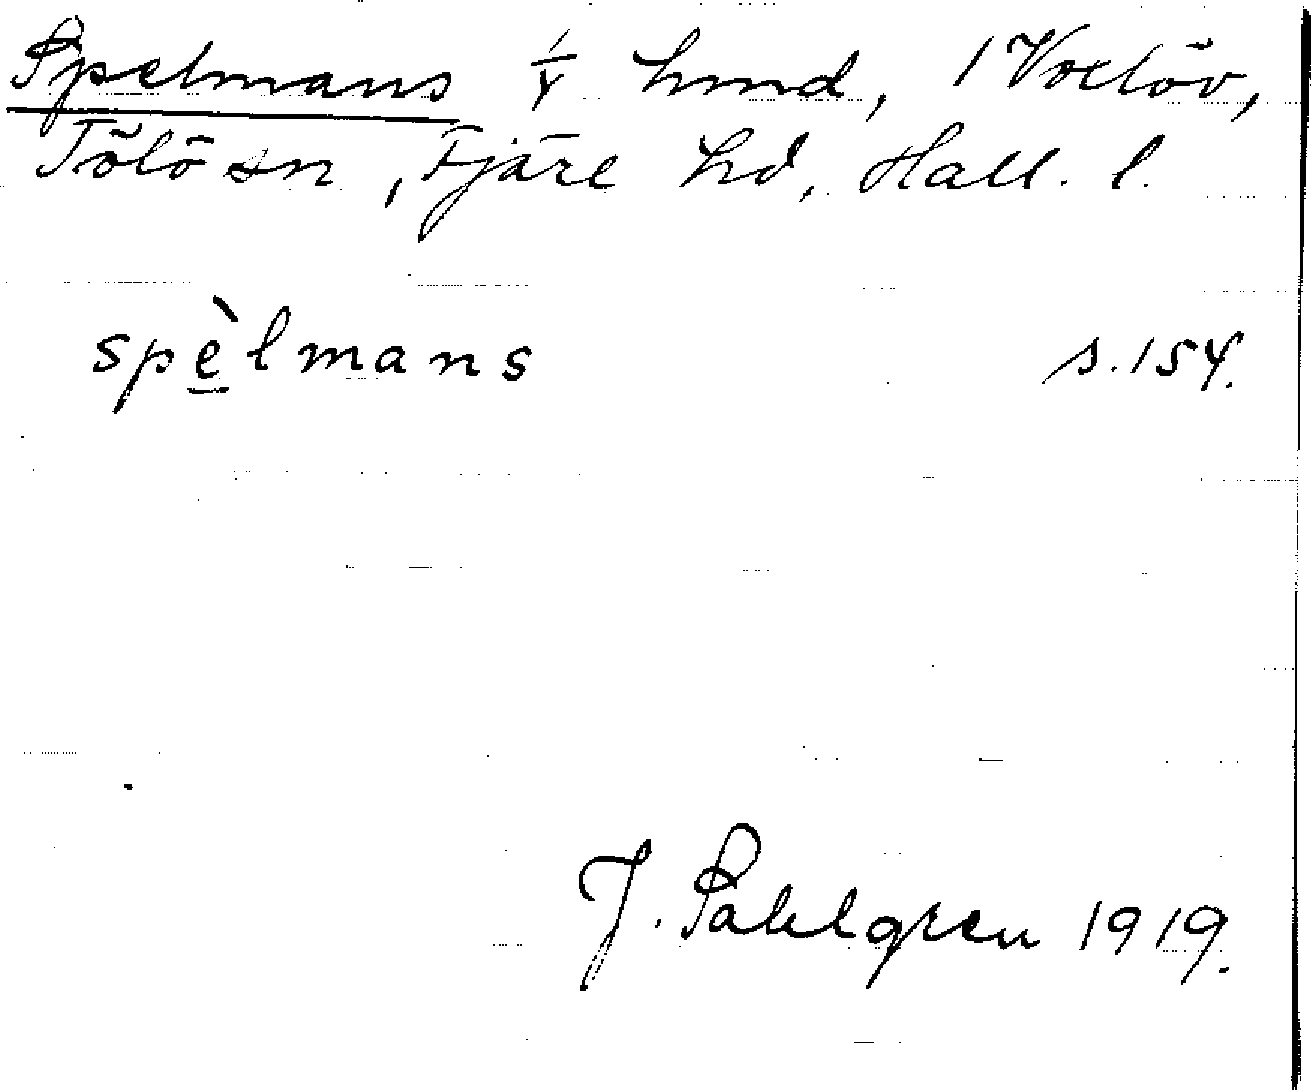 Spelmans 1/4 hmd, 1 Voxlöv,
Tölö sn, Fjäre hd, Hall. l.
spè̲lmans s. 154.
J. Sahlgren 1919.